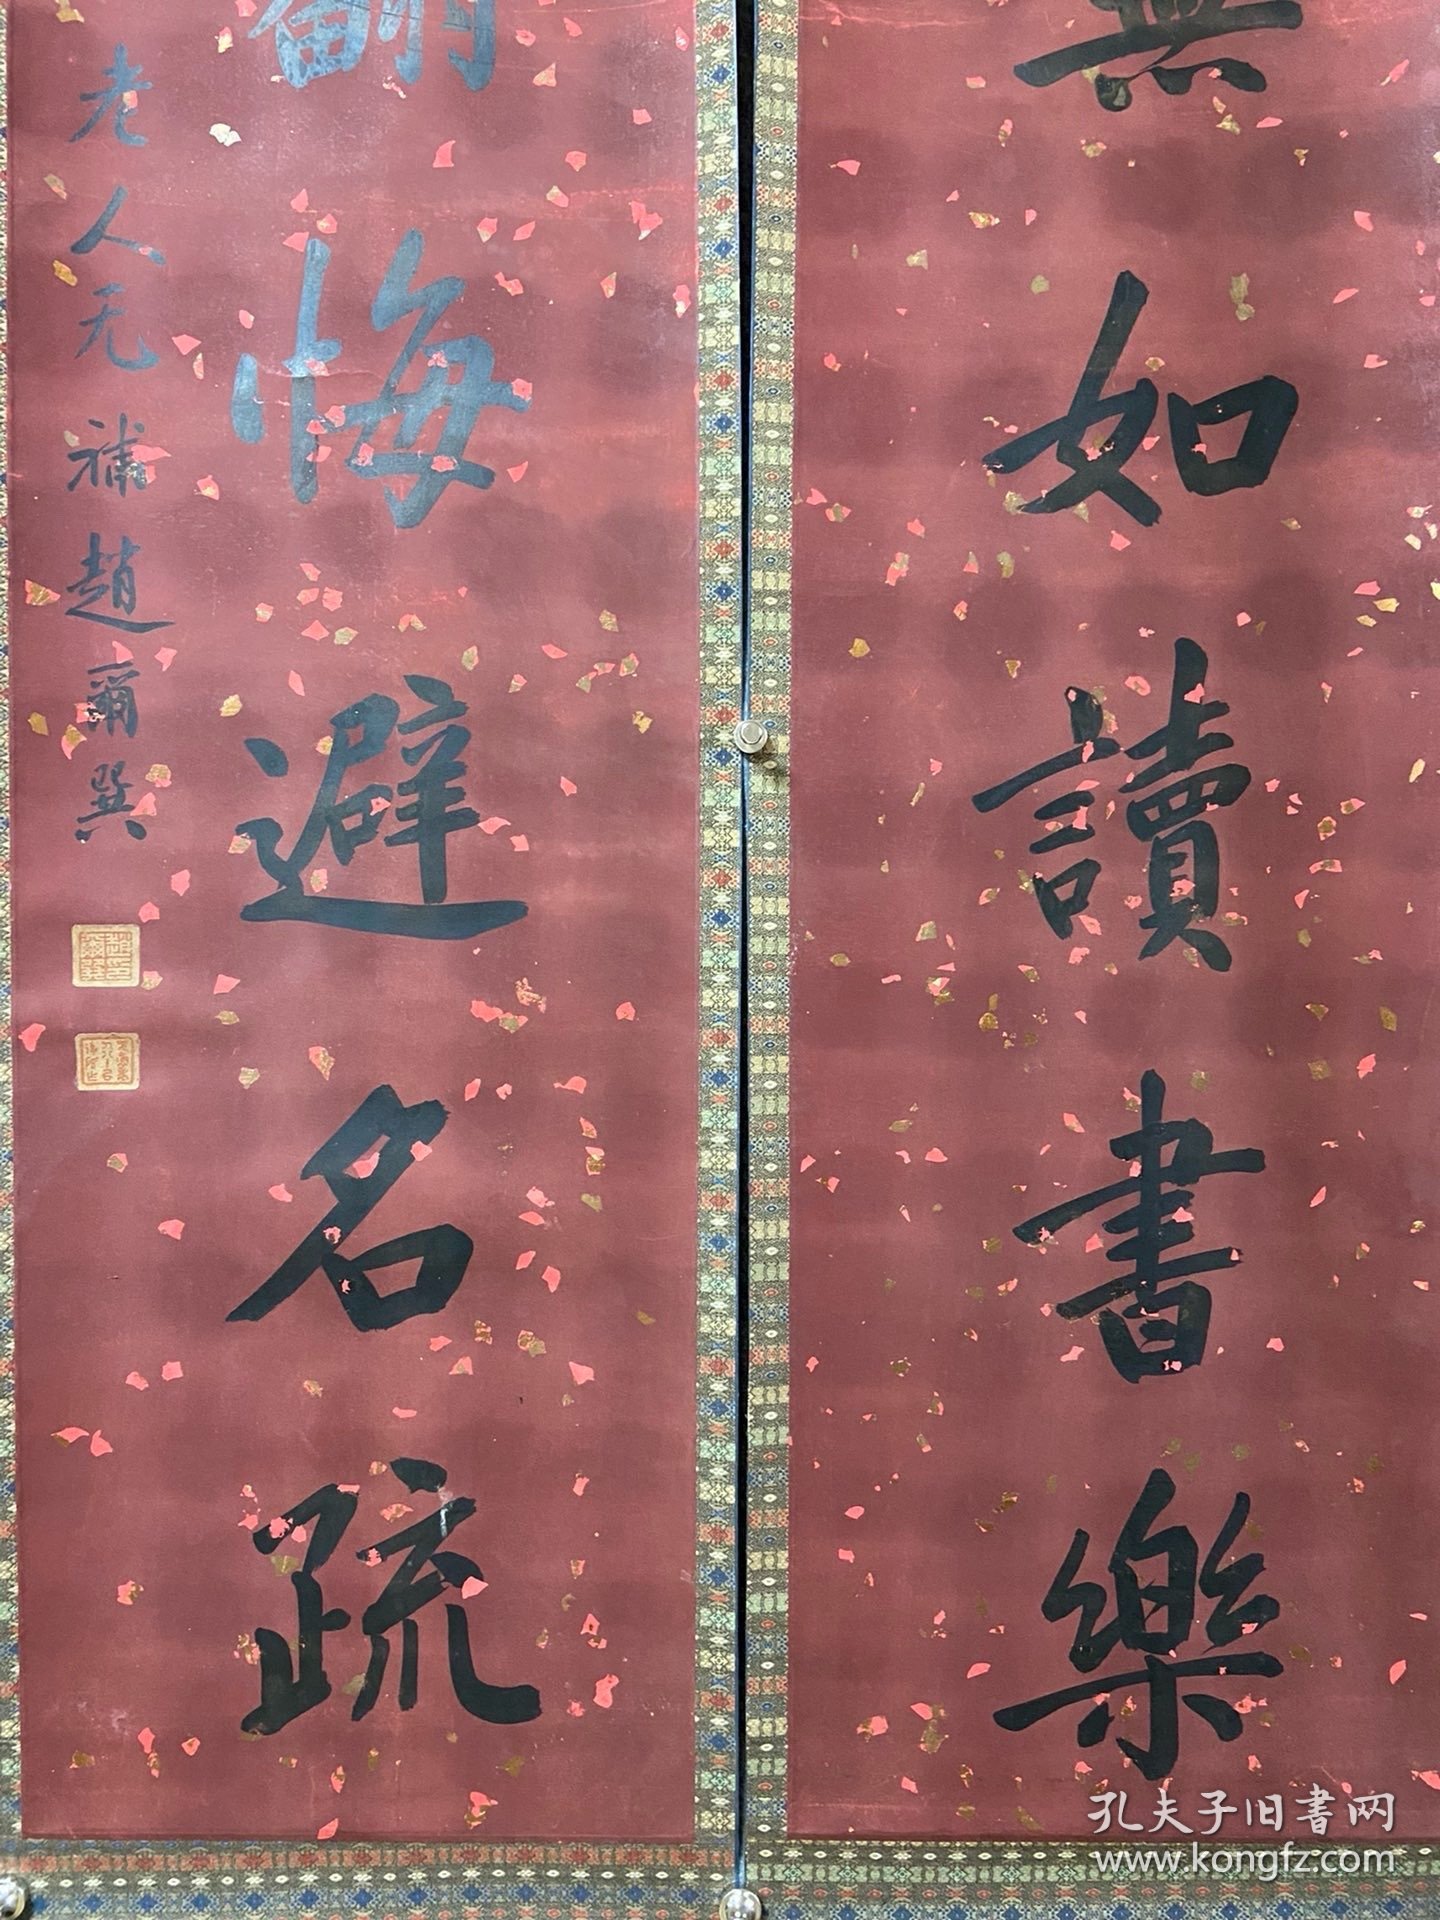 無如讀書樂
翻悔避名疏
老人无補趙爾巽
孔夫子旧書网
www.kongfz.com